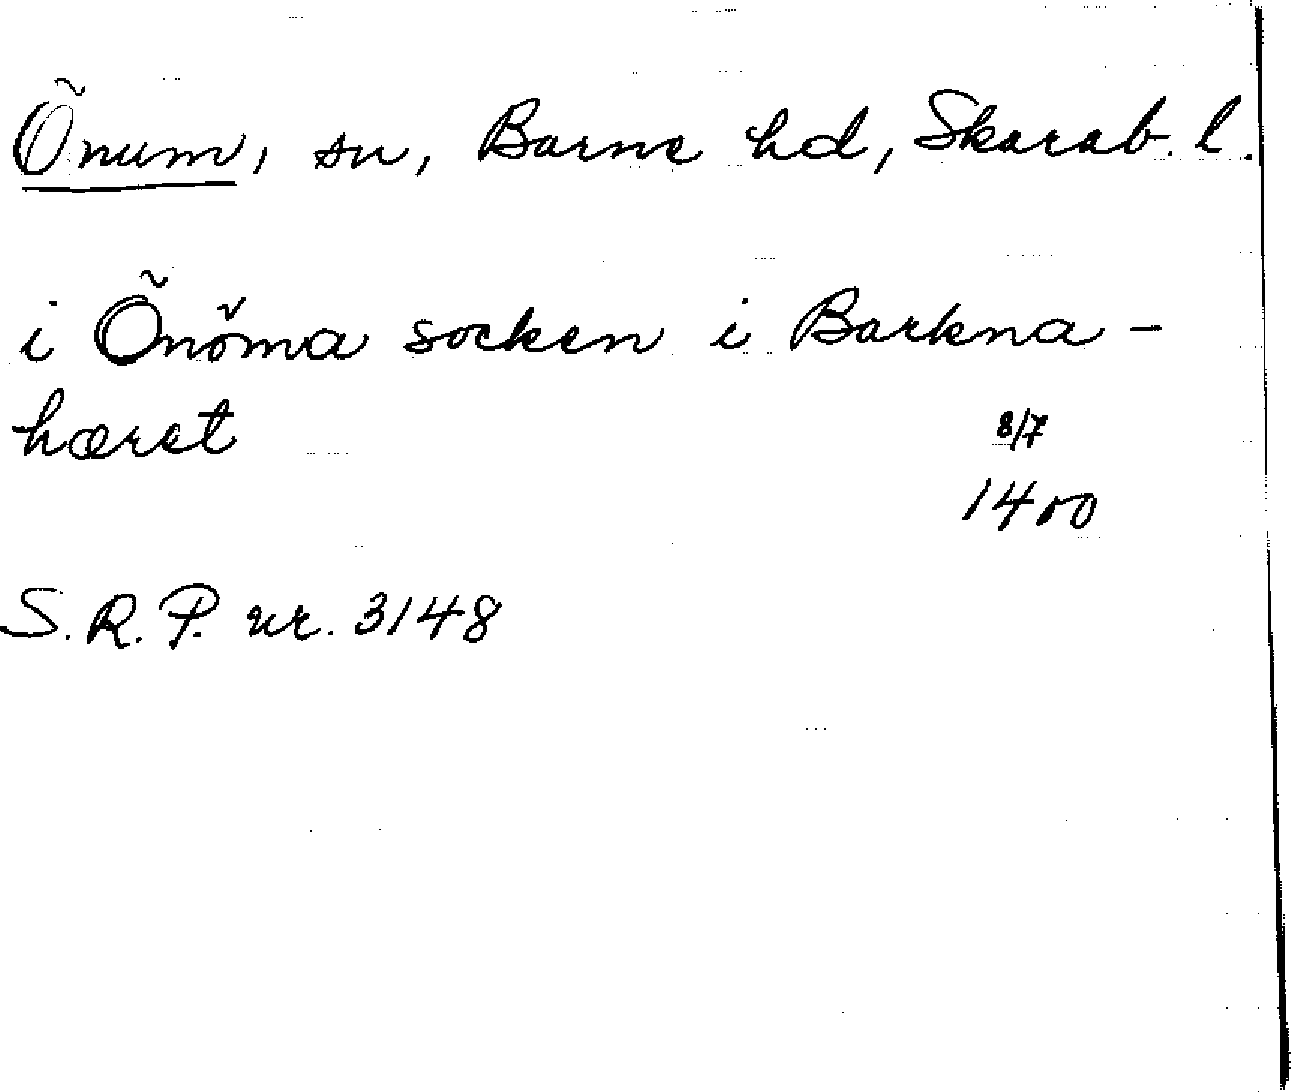 Önum, sn, Barne hd, Skarab. l.
i Önöma socken i Barkna-
hæret
8/7
1400
S.R.P. nr. 3148